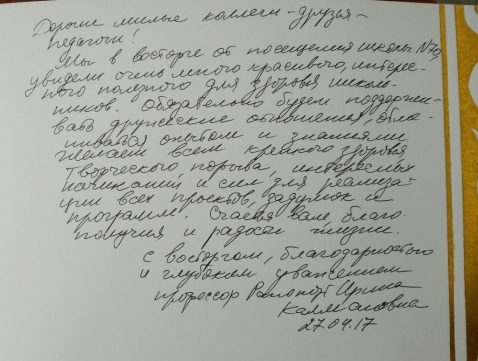 Дорогие милые коллеги-друзья-
педагоги!
Мы в восторге от посещения школы N70,
увидели очень много красивого, интерес-
ного полезного для здоровья школь-
ников. Обязательно будем поддержи-
вать дружеские отношения обме-
ниваться опытом и знаниями
Желаем всем крепкого здоровья
творческого порыва, интересных
начинаний и сил для реализа-
ции всех проектов, задумок и
программ. Счастья вам, благо-
получия и радости жизни.
С восторгом, благодарностью
и глубоким уважением
профессор Рапопорт Ирина
Калмановна
27.04.17